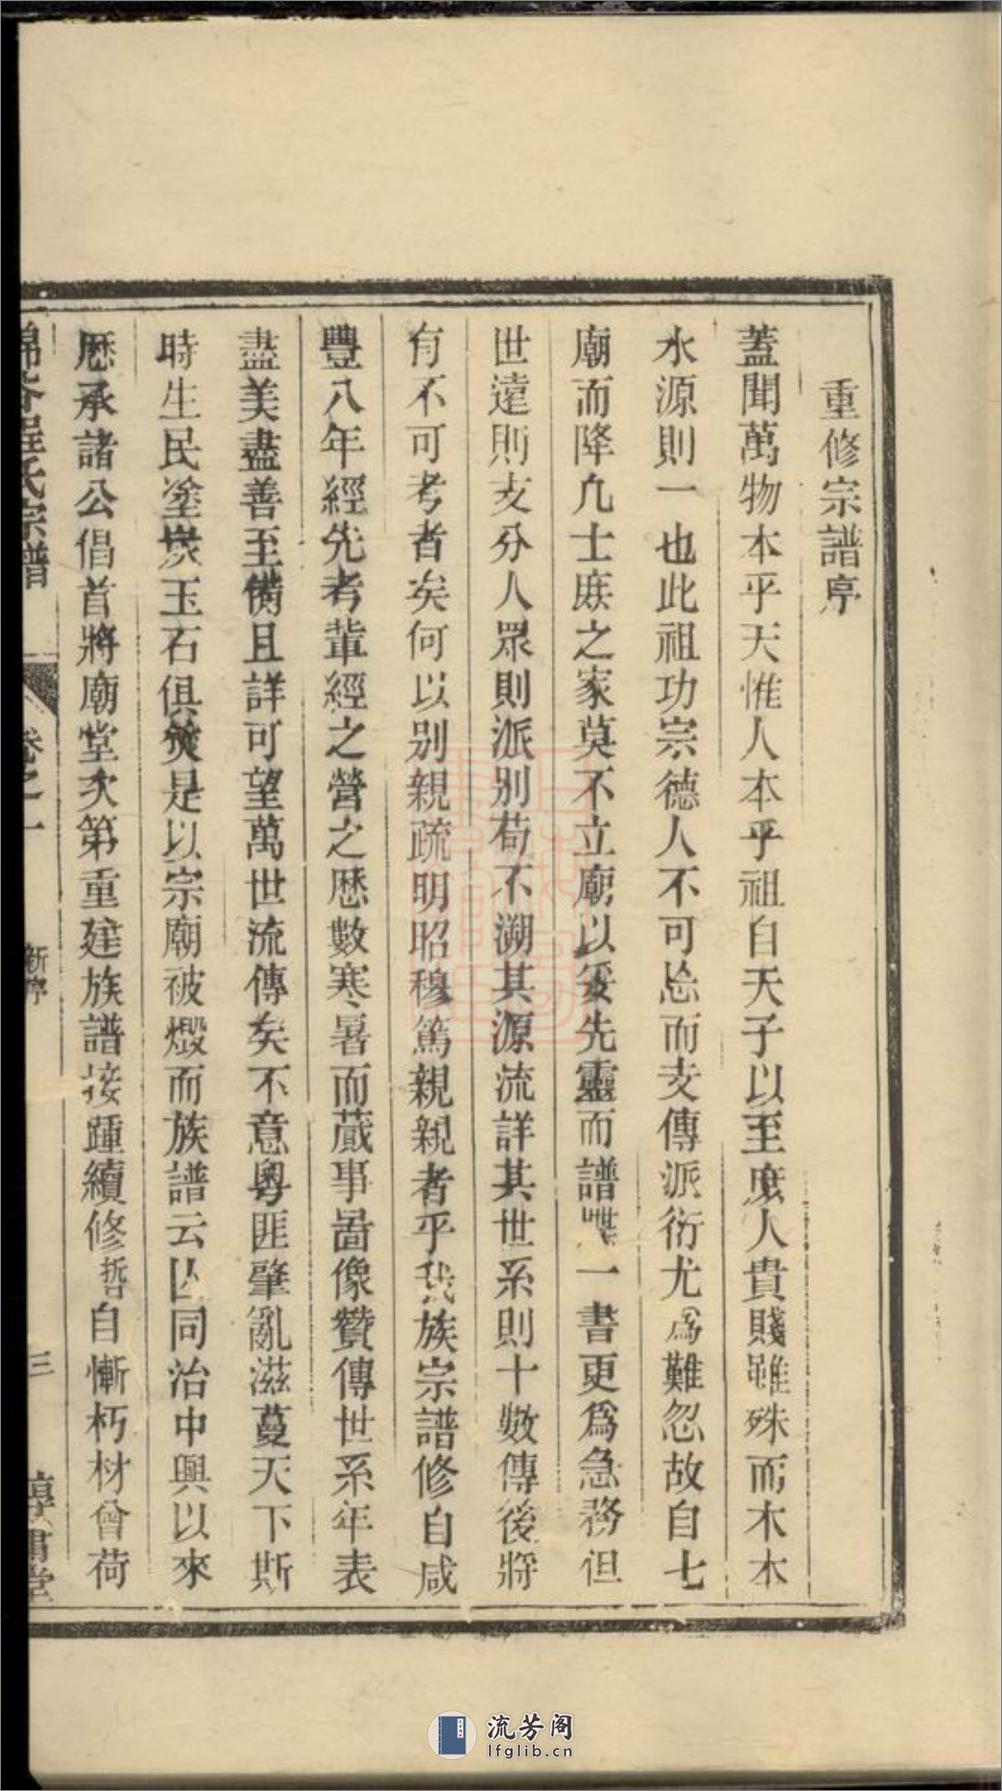 重修宗譜序
蓋聞萬物本乎天惟人本乎祖自天子以至庶人貴賤雖殊而木本
水源則一也此祖功宗德人不可忘而支傳派衍尤爲難忽故自七
廟而降凢士庶之家莫不立廟以妥先靈而譜牒一書更爲急務但
世遠則支分人眾則派別苟不溯其源流詳其世系則十數傳後將
有不可考者矣何以別親疏明昭穆篤親親者乎我族宗譜修自咸
豐八年經先考輩經之營之歷數寒暑而蕆事啚像贊傳世系年表
盡美盡善至備且詳可望萬世流傳矣不意粵匪肇亂滋蔓天下斯
時生民塗炭玉石俱焚是以宗廟被燬而族譜云亾同治中興以來
歷承諸公倡首將廟堂次第重建族譜接踵續修哲自慚朽材曾荷
程氏宗譜
卷之一
新序
三
淳肅堂
流芳阁
lfglib.cn